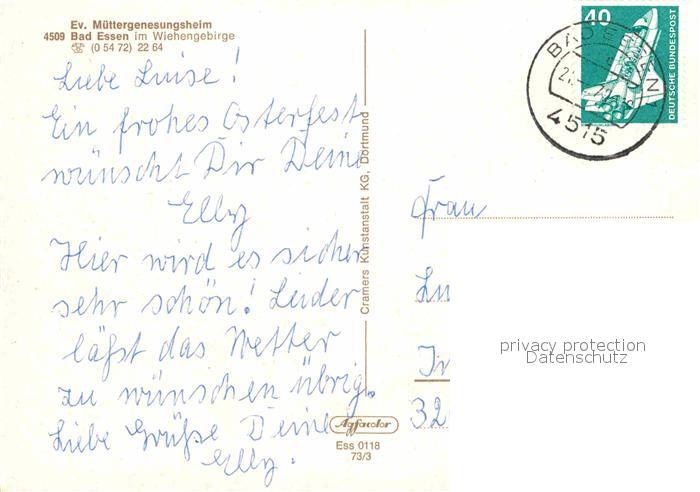 Ev. Müttergenesungsheim
4509 Bad Essen im Wiehengebirge
☎ (0 54 72) 22 64
Liebe Luise!
Ein frohes Osterfest
wünscht Dir Deine
Elly
Hier wird es sicher
sehr schön! Leider
läßt das Wetter
zu wünschen übrig.
Liebe Grüße Deine
Elly.
Cramers Kunstanstalt KG, Dortmund
Agfacolor
Ess 0118
73/3
40
DEUTSCHE BUNDESPOST
BAD ESSEN
4515
Frau
Lu
32
privacy protection
Datenschutz